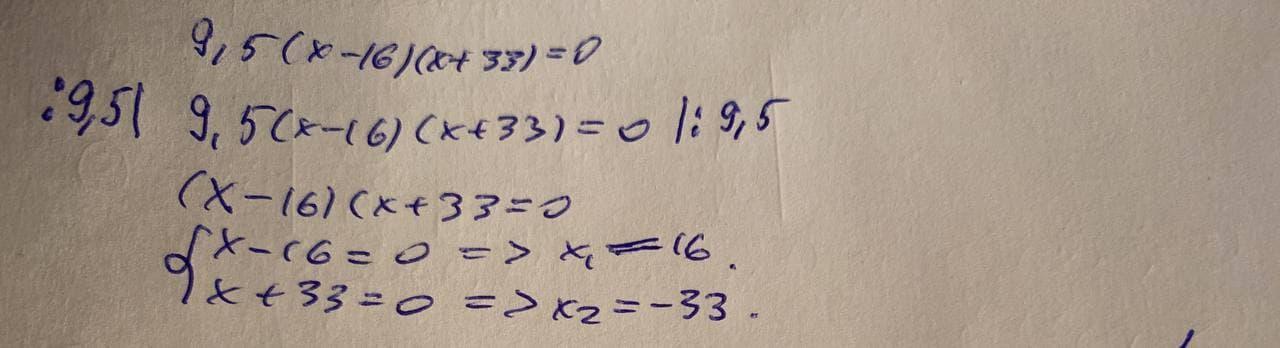 9,5(x-16)(x+33)=0
:9,5| 9,5(x-16)(x+33)=0 |:9,5
(x-16)(x+33=0
{x-16=0 => x₁=16.
x+33=0 => x₂=-33.